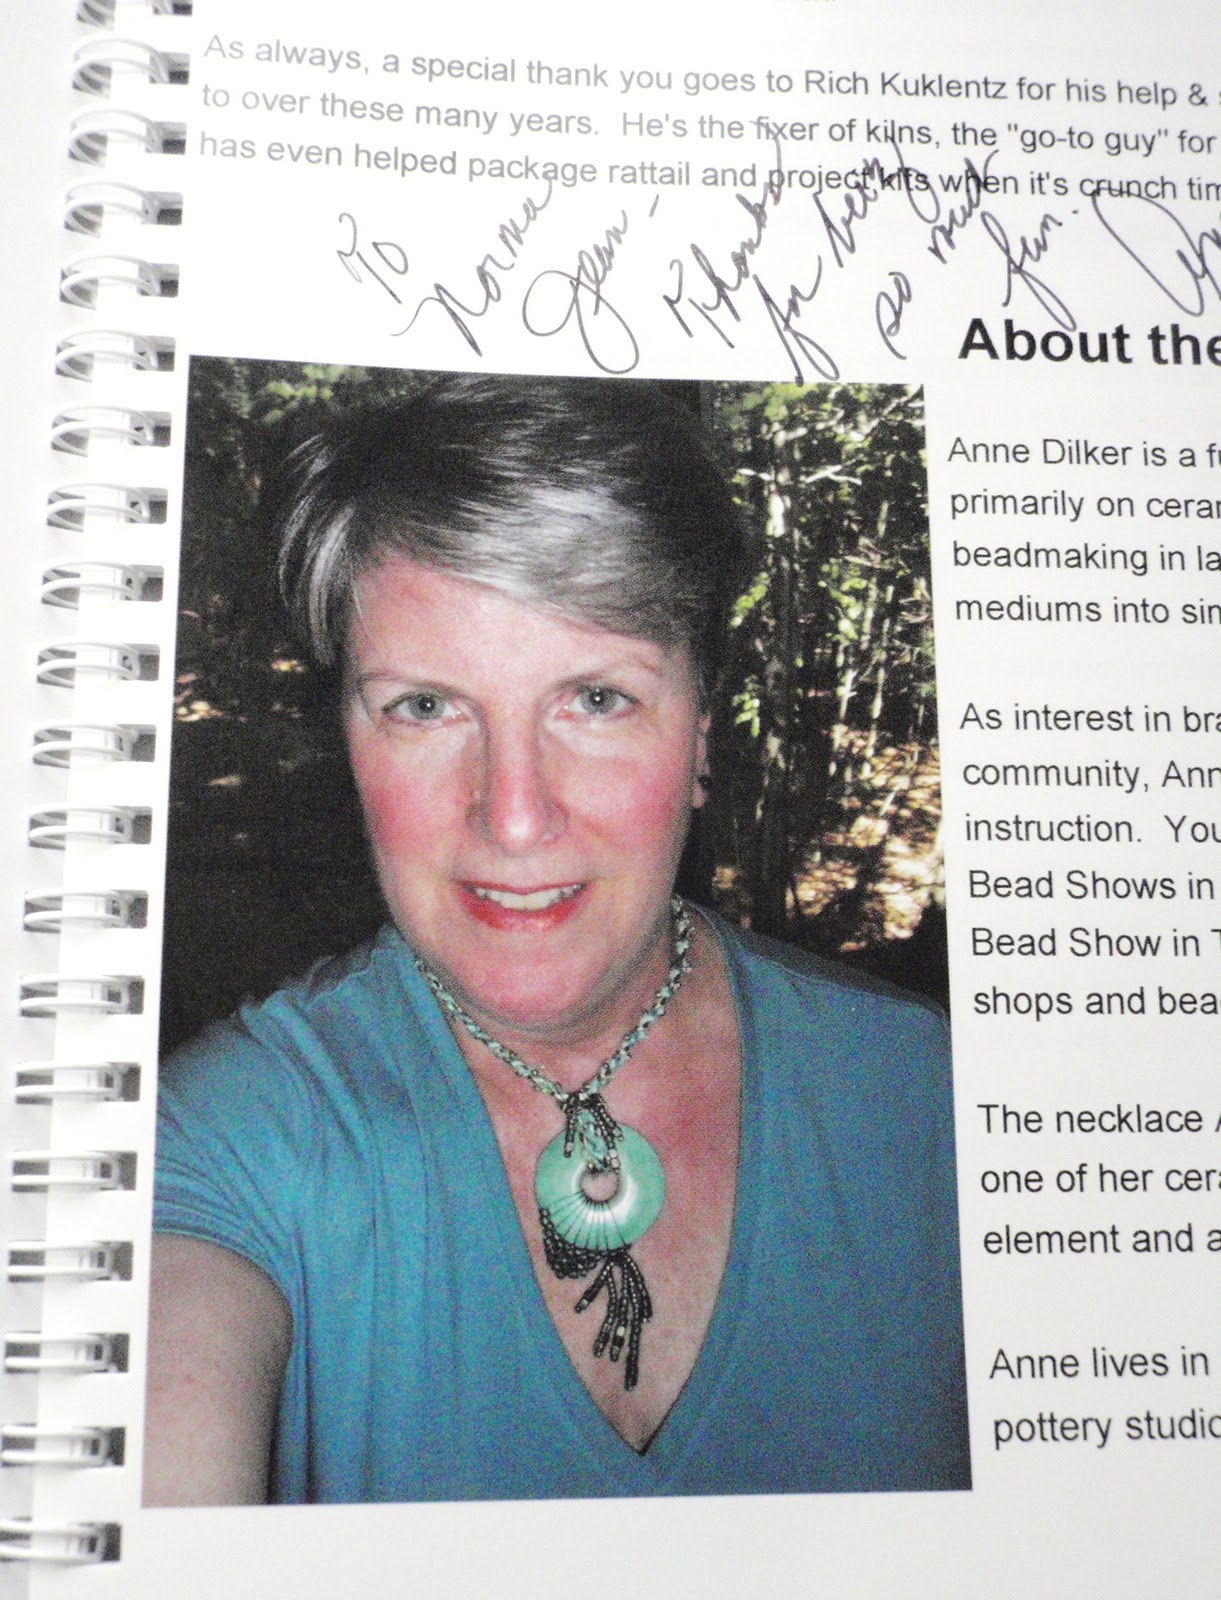 As always, a special thank you goes to Rich Kuklentz for his help &
to over these many years.  He's the fixer of kilns, the "go-to guy" for
has even helped package rattail and project kits when it's crunch tim
To Norma Jean -
for being
so much
fun.
About the
Anne Dilker is a fu
primarily on cerar
beadmaking in la
mediums into sin
As interest in bra
community, Ann
instruction.  You
Bead Shows in
Bead Show in T
shops and bea
The necklace A
one of her cera
element and a
Anne lives in
pottery studio